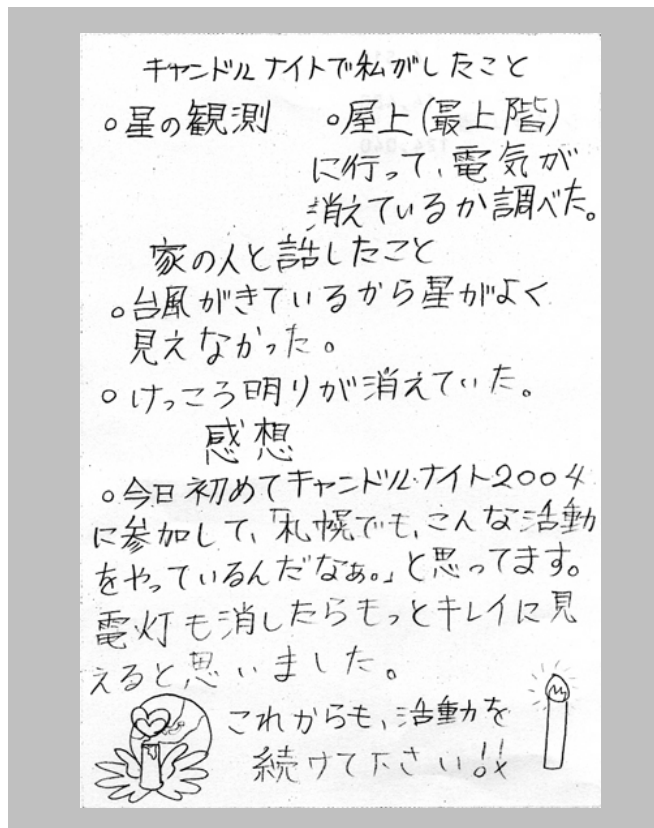 キャンドルナイトで私がしたこと
○星の観測　○屋上(最上階)
に行って、電気が
消えているか調べた。
家の人と話したこと
○台風がきているから星がよく
見えなかった。
○けっころ明りが消えていた。
感想
○今日初めてキャンドルナイト2004
に参加して、「札幌でも、こんな活動
をやっているんだなぁ。」と思ってます。
電灯も消したらもっとキレイに見
えると思いました。
これからも、活動を
続けて下さい!!